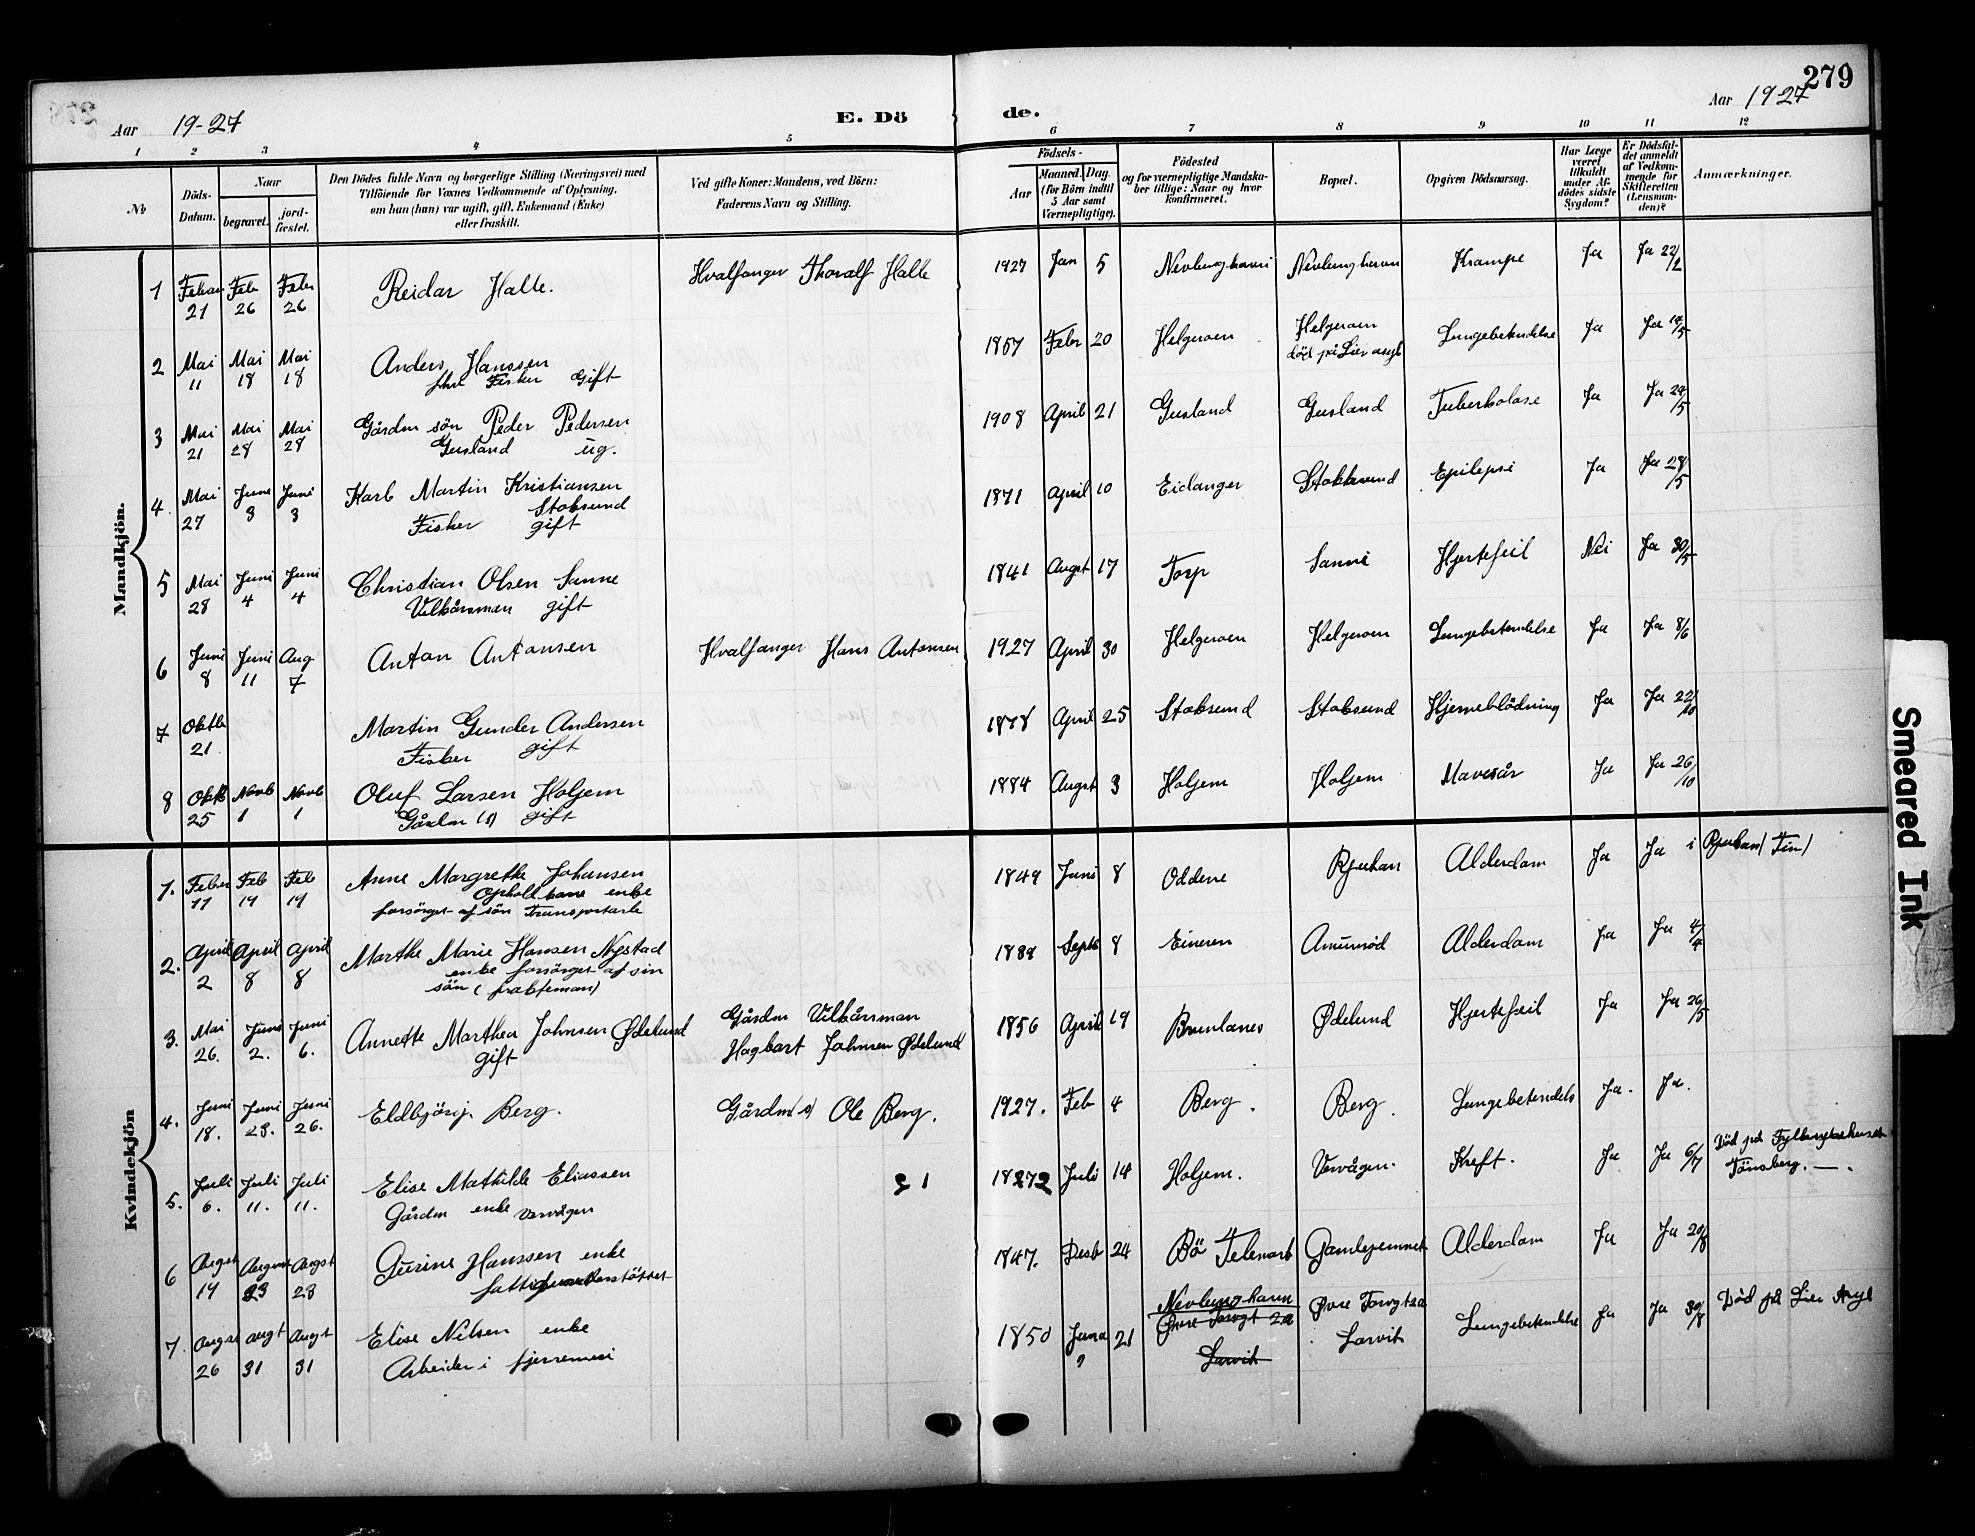 279
Aar 19-27
E. Döde.
Aar 1927
1 2 3 4 5 6 7 8 9 10 11 12
No
Döds-Datum.
Naar
begravet.
jordfæstet.
Den Dödes fulde Navn og borgerlige Stilling (Næringsvei) med
Tilföiende for Voxnes Vedkommende af Oplysning,
om han (hun) var ugift, gift, Enkemand (Enke)
eller fraskilt.
Ved gifte Koner: Mandens, ved Börn:
Faderens Navn og Stilling.
Födsels-
Aar
Maaned. Dag.
(for Börn indtil
5 Aar samt
Værnepligtige).
Födested
og for værnepligtige Mandskaber tillige: Naar og hvor
konfirmeret.
Bopæl.
Opgiven Dödsaarsag.
Har Læge
været
tilkaldt
under Afdödes sidste
Sygdom?
Er Dödsfaldet anmeldt
af Vedkommende for
Skifteretten
(Lensmanden)?
Anmærkninger.
Mandkjön.
1 Febuar 21 Feb 26 Feber 26 Reidar Halle. Hvalfanger Thoralf Halle 1927 Jan 5 Nevlunghavn Nevlunghavn Krampe Ja Ja 22/2
2 Mai 11 Mai 18 Mai 18 Anders Hanssen
Fisker Gift 1857 Feber 20 Helgeroen Helgeroen
död på Lier asyl Lungebetendelse Ja Ja 14/5
3 Mai 21 Mai 28 Mai 28 Gårdm sön Peder Pedersen
Gusland ug. 1908 April 21 Gusland Gusland Tuberkolose Ja Ja 24/5
4. Mai 27 June 3 Juni 3 Karl Martin Kristiansen
Stoksund
Fisker gift 1871 April 10 Eidanger Stokksund Epilepsi Ja Ja 28/5
5 Mai 28 Juni 4 Juni 4 Christian Olsen Sanne
Vilkårsman gift 1841 Augst 17 Torp Sanne Hjertefeil Nei Ja 30/5
6 Juni 8 Juni 11 Aug 7 Anton Antonsen Hvalfanger Hans Antonsen 1927 April 30 Helgeroen Helgeroen Lungebetendelse Ja Ja 8/6
7 Oktb 21 Martin Gunder Andersen
Fisker gift 1878 April 25 Stoksund Stoksund Hjerneblödning Ja Ja 22/10
8 Oktb 25 Novb 1 Novb 1 Oluf Larsen Holjem
Gårdm (s) gift 1884 Augst 3 Holjem Holjem Mavesår Ja Ja 26/10
Kvindekjön
1. Feber 11 Feb 19 Feb 19 Anne Margrethe Johansen
enke
forsörget af sön 1849 Juni 8 Oddene Rjukan Alderdom Ja Ja i Rjukan (Tin)
2. April 2 April 8 April 8 Marthe Marie Hansen Nystad
enke forsörget af sin
sön (frakteman) Septb 8 Eineren Anumröd Alderdom Ja Ja 4/4
3. Mai 26. Juni 2. Juni 6. Annette Marthea Johnsen Ødelund
gift Gårdm Vilkårsman
Hagbart Johnsen Ødelund 1856 April 19 Brunlanes Ødelund Hjertefeil Ja Ja 26/5
4. Juni 18. Juni 23. Juni 26. Eldbjörg Berg. Gårdm (s) Ole Berg. 1927. Feb 4 Berg. Berg. Lungebetendels Ja. Ja.
5. Juli 6. Juli 11. Juli 11. Elise Mathilde Eliassen
Gårdm enke Vevågen 1872 Juli 14 Holjem. Vevågen. Kreft. Ja Ja 6/7 Död på Fylkessykehuset
Tönsberg.
6 Augst 19 August 23 Augst 23 Gurine Hanssen enke
fattigunderstöttet 1847. Desb 24 Bö Telemark Alderdom Ja Ja 20/8
7. Augst 26 augt 31 Augt 31 Elise Nilsen enke
Arbeider i 1850 Juni 21 Nevlunghavn
Øvre Torvgt 2a
Larvik Øvre Torvgt 2a
Larvik Lungebetendelse Ja Ja 30/8 Död på Lier Asyl
Smeared Ink